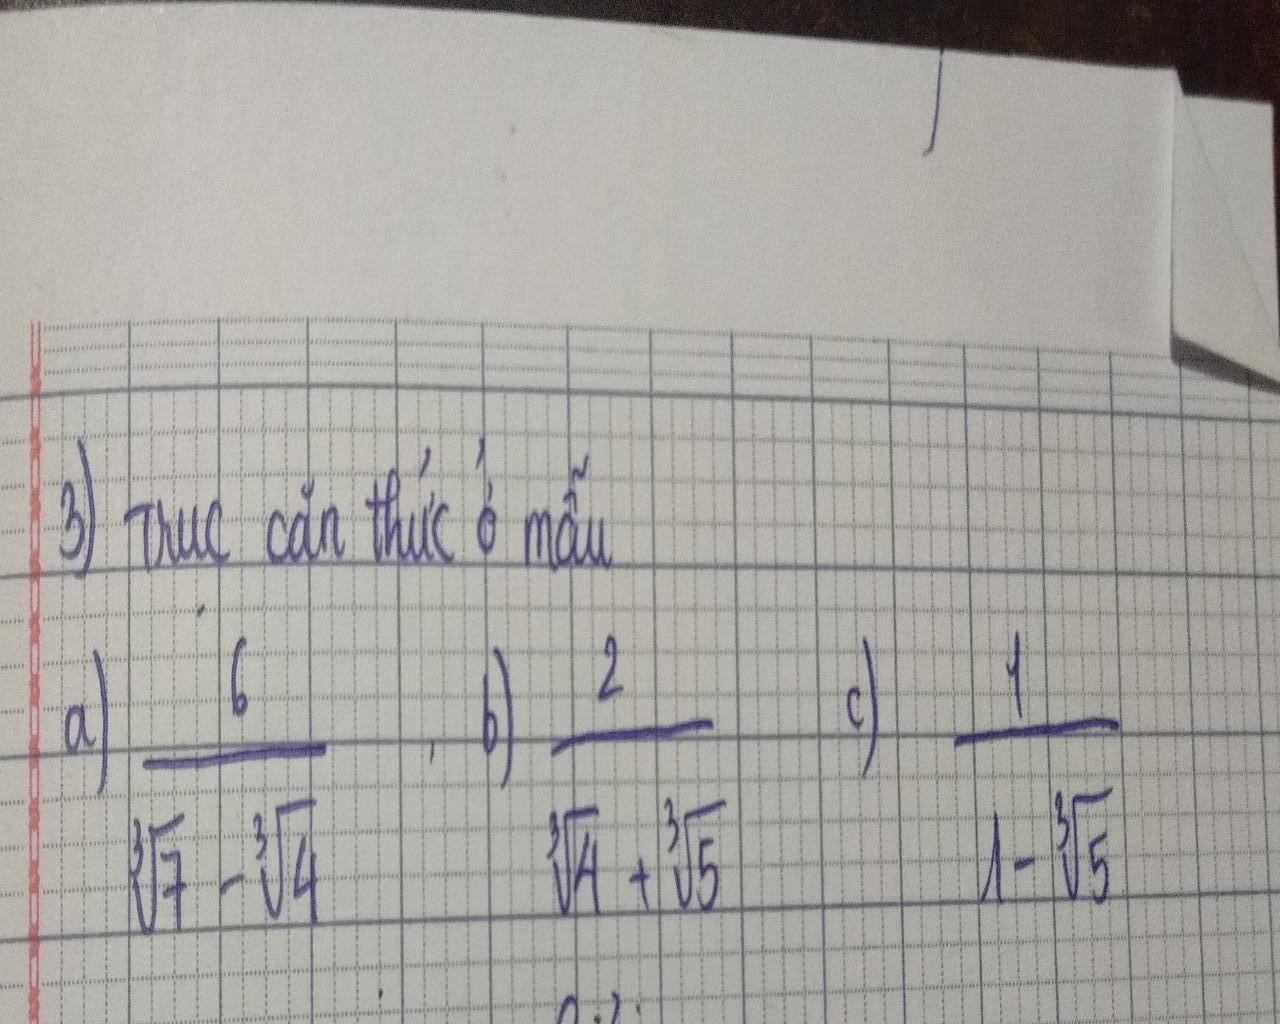 3) Trục căn thức ở mẫu
a) 6 / (∛7 - ∛4) , b) 2 / (∛4 + ∛5) c) 1 / (1 - ∛5)